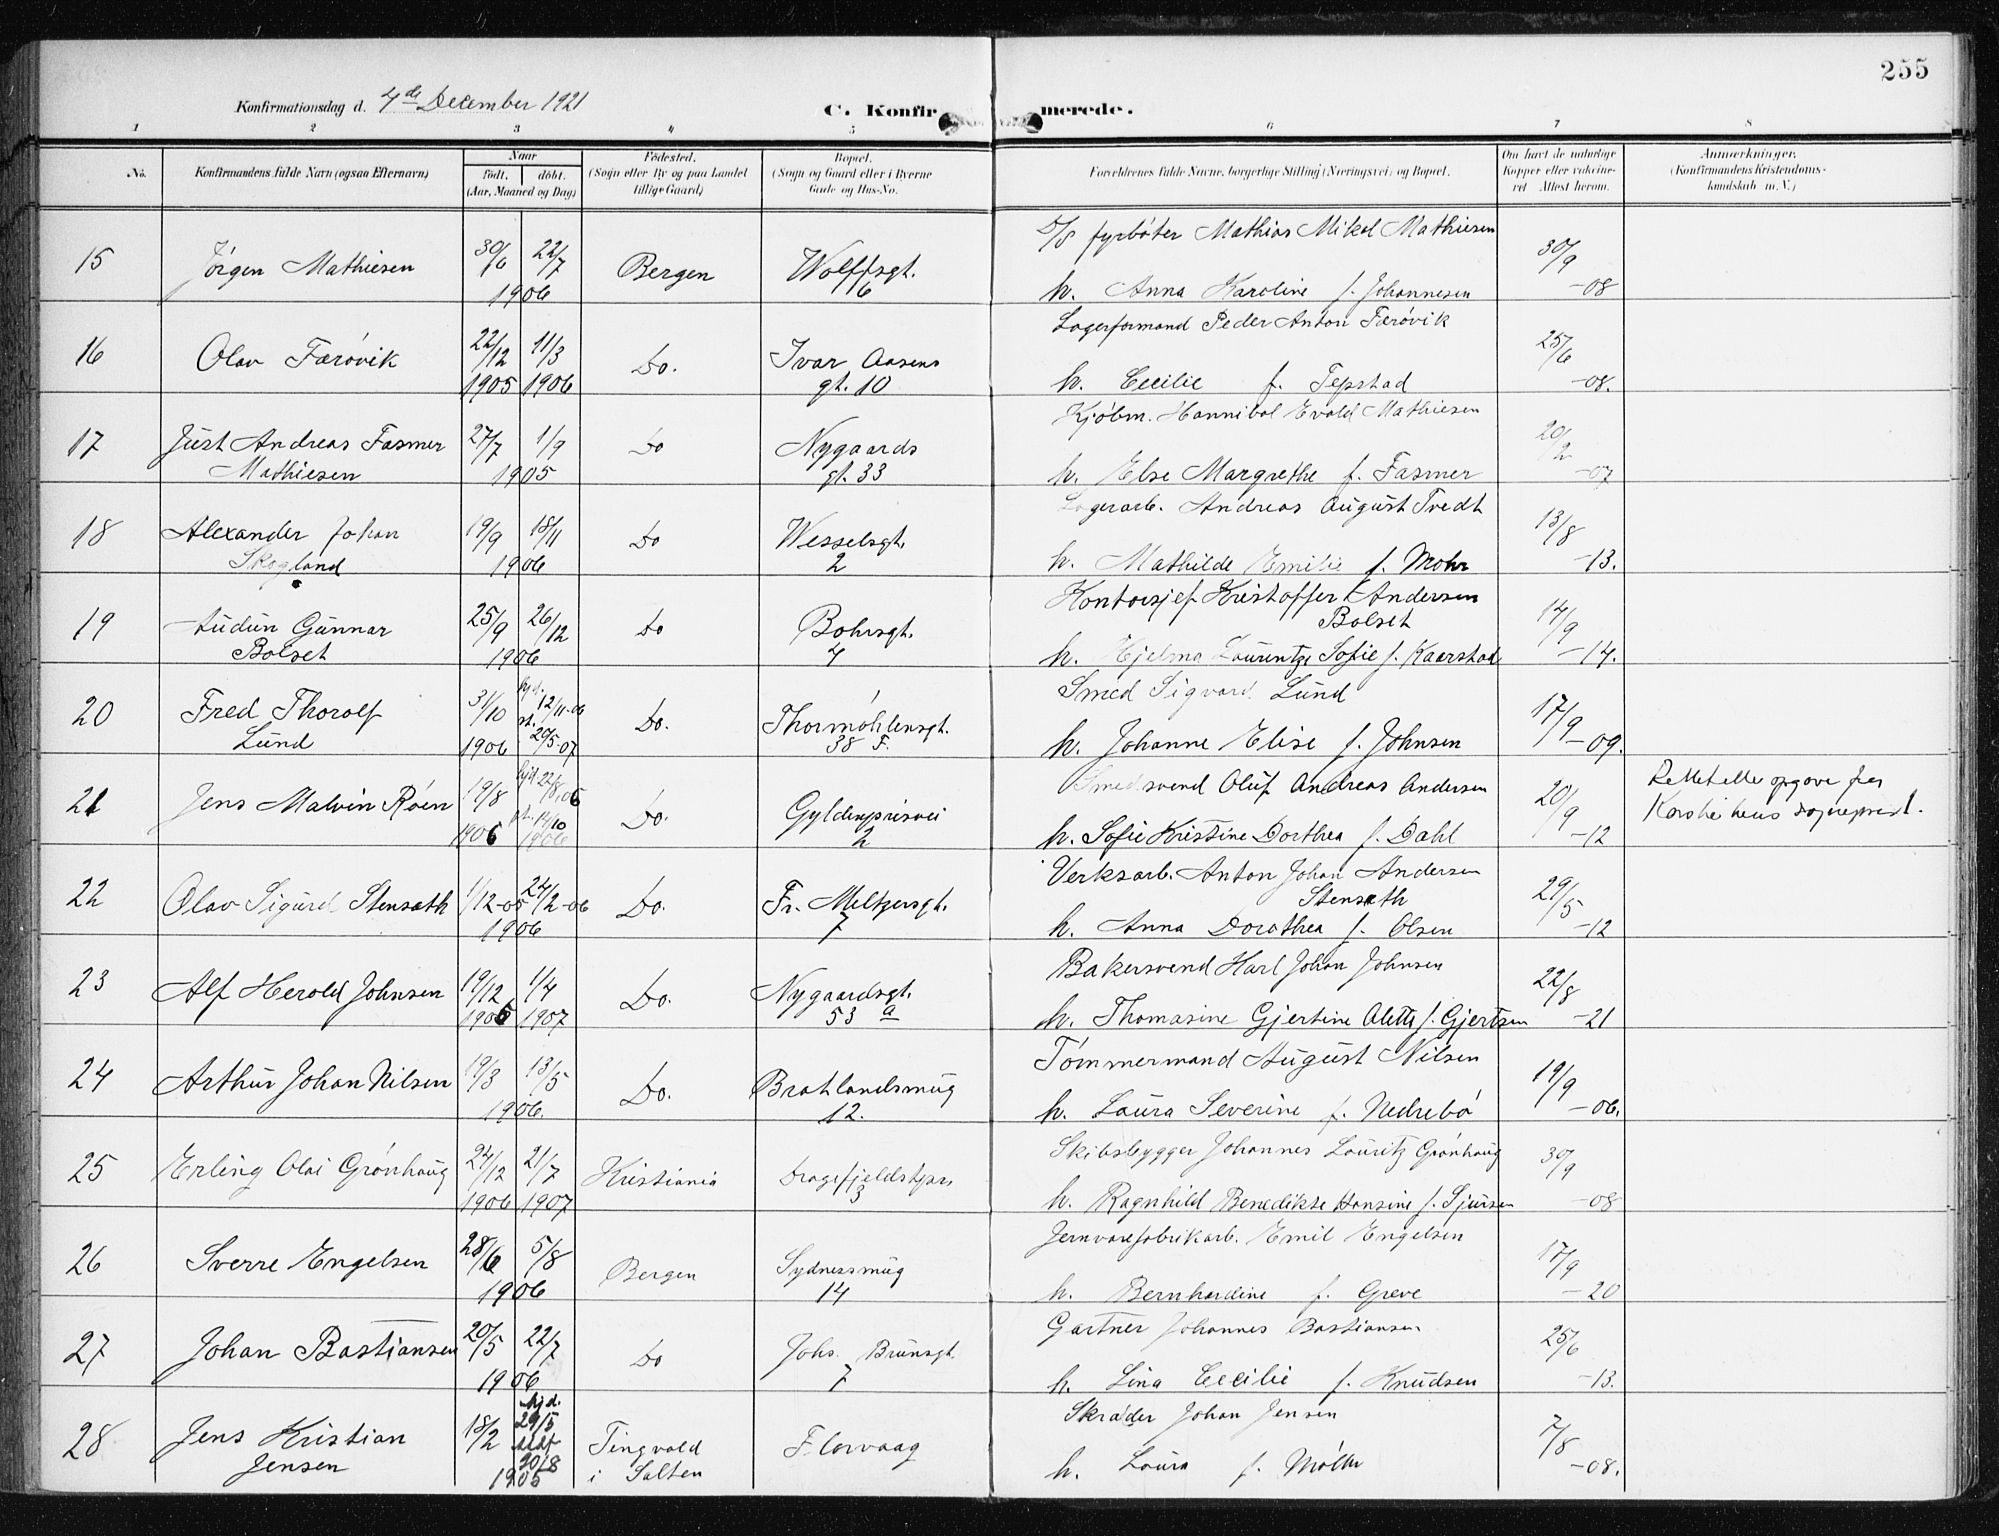 255
Konfirmationsdag d. 4de December 1921
C. Konfirmerede.
1 2 3 4 5 6 7 8
No.
Konfirmandens fulde Navn (ogsaa Efternavn)
Naar
født. døbt.
(Aar, Maaned og Dag)
Fødested.
(Sogn eller By og paa Landet
tillige Gaard)
Bopæl.
(Sogn og Gaard eller i Byerne
Gade og Hus-No.
Forældrenes fulde Navne, borgerlige Stilling (Næringsvei) og Bopæl.
Om havt de naturlige
Kopper eller vakcine-
ret Attest herom.
Anmærkninger.
(Konfirmandens Kristendoms-
kundskab m. V.)
15 Jørgen Mathiesen 30/6 22/7 1906 Bergen Wolffsgt. 6
D/S fyrbøter Mathias Mikal Mathiesen
h. Anna Karoline f. Johannesen 30/9 -08
16 Olav Færøvik 22/12 1905 11/3 1906 Do. Ivar Aasens gt. 10
Lagerformand Peder Anton Færøvik
h. Cecilie f. Tepstad 25/6 -08.
17 Just Andreas Fasmer
Mathiesen 27/7 1/9 1905 Do Nygaards gt. 33
Kjøbm. Hannibal Evald Mathiesen
h. Else Margrethe f. Fasmer 20/2 -07
18 Alexander Johan
Skogland 19/9 18/11 1906 Do Wesselsgt. 2
Lagerarb. Andreas August Tvedt
h. Mathilde Emilie f. Mohr 13/8 -13.
19 Audun Gunnar
Bolset 25/9 26/12 1906 Do Bohrsgt. 4
Kontorsjef Kristoffer Andersen
Bolset
h. Hjelma Laurentze Sofie f. Kaarstad 14/9 -14.
20 Fred Thorolf
Lund 31/10 1906 hjd. 12/11-06 st. 20/5-07 Do. Thormøhlensgt. 38 F.
Smed Sigvard Lund
h. Johanne Elise f. Johnsen 17/9 -09.
21 Jens Malvin Røen 19/8 1906 hjd. 22/8.06 st. 14/10 1906 Do. Gyldenprisvei 2
Smedsvend Oluf Andreas Andersen
h. Sofie Kristine Dorthea f. Dahl 20/9 -12
22 Olav Sigurd Stensæth 1/12-05 24/2-06 1906 Do. Fr. Meltzersgt. 7
Verksarb. Anton Johan Andersen
Stensæth
h. Anna Dorothea f. Olsen 29/5 -12
23 Alf Herold Johnsen 19/12 1906 1/4 1907 Do. Nygaardsgt. 53 a
Bakersvend Harl Johan Johnsen
h. Thomasine Gjertine Alette f. Gjertsen 22/8 -21
24 Arthur Johan Nilsen 19/3 13/5 1906. Do. Bratlandsmug 12.
Tømmermand August Nilsen
h. Laura Severine f. Nedrebø 19/9 -06.
25 Erling Olai Grønhaug 24/12 1906 21/7 1907 Kristiania Dragefjeldstpr. 3
Skibsbygger Johannes Lauritz Grønhaug
h. Ragnhild Benedikte Hansine f. Sjursen 30/9 -08
26 Sverre Engelsen 28/6 5/8 1906 Bergen Sydnessmug 14
Jernvarefabrikarb. Emil Engelsen
h. Bernhardine f. Greve 17/9 -20
27 Johan Bastiansen 20/5 22/7 1906 Do Johs. Brunsgt. 7
Gartner Johannes Bastiansen
h. Lina Cecilie f. Knudsen 25/6 -13.
28 Jens Kristian
Jensen 18/2 hjd. 29/5 20/8 1905 Tingvold
i Salten Florvaag
Skræder Johan Jensen
h. Laura f. Møller 7/8 -08.